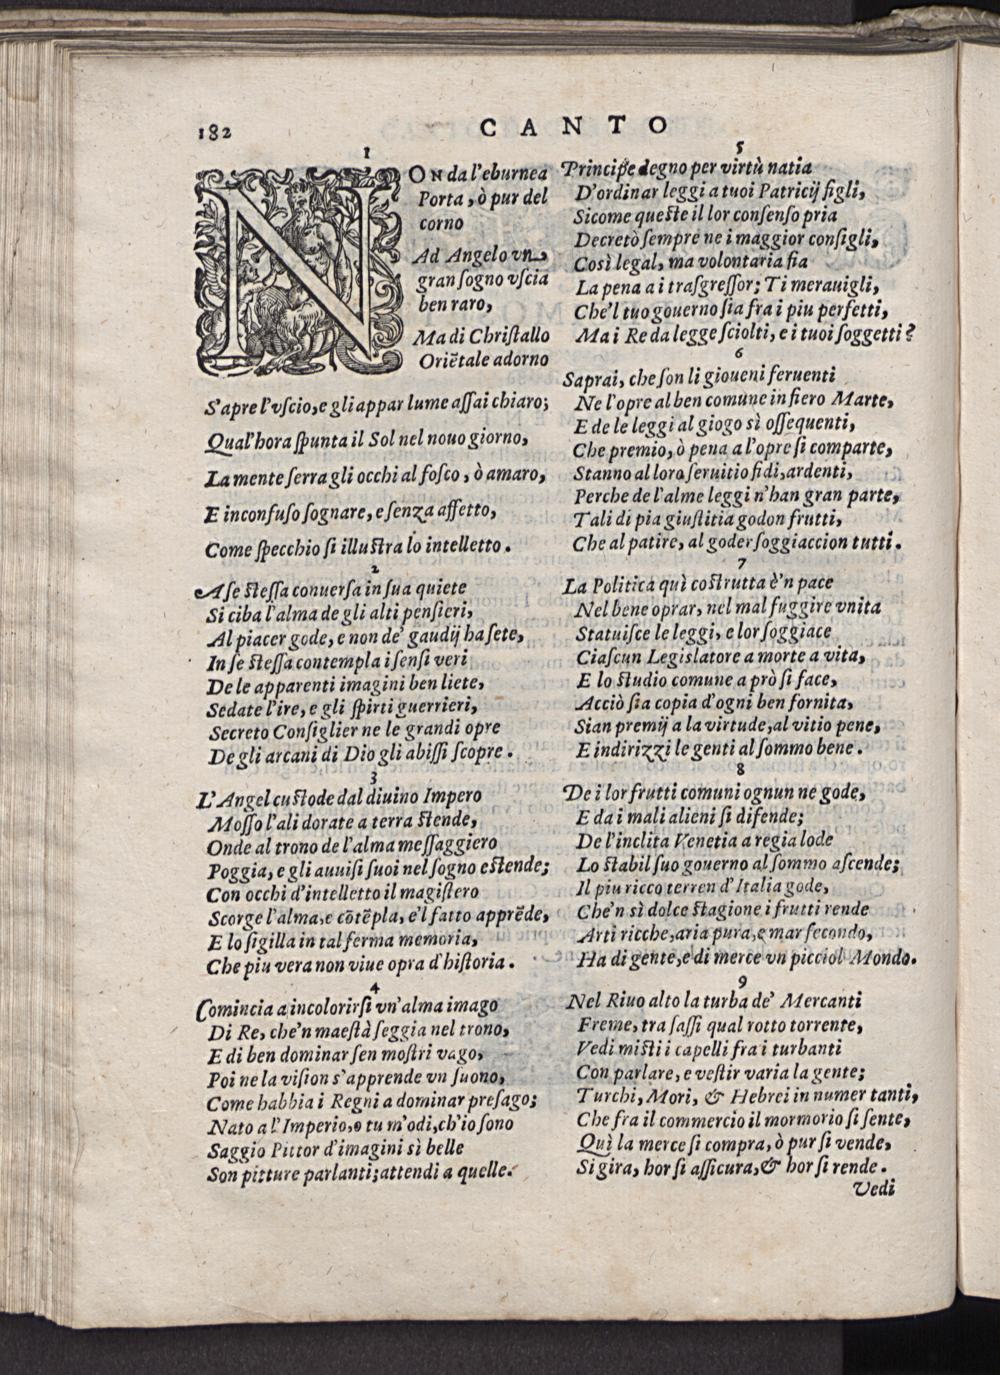 182
CANTO
1
NON da l'eburnea
Porta, ò pur del
corno
Ad Angelo vn
gran ſogno vſcia
ben raro,
Ma di Chriſtallo
Oriētale adorno
S'apre l'vſcio, e gli appar lume aſſai chiaro;
Qual'hora ſpunta il Sol nel nouo giorno,
La mente ſerra gli occhi al foſco, ò amaro,
E inconfuſo ſognare, e ſenza affetto,
Come ſpecchio ſi illuſtra lo intelletto.
2
A ſe ſteſſa conuerſa in ſua quiete
Si ciba l'alma de gli alti penſieri,
Al piacer gode, e non de' gaudij ha ſete,
In ſe ſteſſa contempla i ſenſi veri
De le apparenti imagini ben liete,
Sedate l'ire, e gli ſpirti guerrieri,
Secreto Conſiglier ne le grandi opre
De gli arcani di Dio gli abiſſi ſcopre.
3
L'Angel cuſtode dal diuino Impero
Moſſo l'ali dorate a terra ſtende,
Onde al trono de l'alma meſſaggiero
Poggia, e gli auuiſi ſuoi nel ſogno eſtende;
Con occhi d'intelletto il magiſtero
Scorge l'alma, e cōtēpla, e'l fatto apprēde,
E lo ſigilla in tal ferma memoria,
Che piu vera non viue opra d'hiſtoria.
4
Comincia a incolorirſi vn'alma imago
Di Re, che'n maeſtà ſeggia nel trono,
E di ben dominar ſen moſtri vago,
Poi ne la viſion s'apprende vn ſuono,
Come habbia i Regni a dominar preſago;
Nato a l'Imperio, o tu m'odi, ch'io ſono
Saggio Pittor d'imagini sì belle
Son pitture parlanti; attendi a quelle.
5
Principe degno per virtù natia
D'ordinar leggi a tuoi Patricij figli,
Sicome queſte il lor conſenſo pria
Decretò ſempre ne i maggior conſigli,
Così legal, ma volontaria ſia
La pena a i traſgreſſor; Ti merauigli,
Che'l tuo gouerno ſia fra i piu perfetti,
Ma i Re da legge ſciolti, e i tuoi ſoggetti?
6
Saprai, che ſon li gioueni feruenti
Ne l'opre al ben comune in fiero Marte,
E de le leggi al giogo sì oſſequenti,
Che premio, ò pena a l'opre ſi comparte,
Stanno al loro ſeruitio fidi, ardenti,
Perche de l'alme leggi n'han gran parte,
Tali di pia giuſtitia godon frutti,
Che al patire, al goder ſoggiaccion tutti.
7
La Politica quì coſtrutta è'n pace
Nel bene oprar, nel mal fuggire vnita
Statuiſce le leggi, e lor ſoggiace
Ciaſcun Legislatore a morte a vita,
E lo ſtudio comune a prò ſi face,
Acciò ſia copia d'ogni ben fornita,
Sian premij a la virtude, al vitio pene,
E indirizzi le genti al ſommo bene.
8
De i lor frutti comuni ognun ne gode,
E da i mali alieni ſi difende;
De l'inclita Venetia a regia lode
Lo ſtabil ſuo gouerno al ſommo aſcende;
Il piu ricco terren d'Italia gode,
Che'n sì dolce ſtagione i frutti rende
Arti ricche, aria pura, e mar fecondo,
Ha di gente, e di merce vn picciol Mondo.
9
Nel Riuo alto la turba de' Mercanti
Freme, tra ſaſſi qual rotto torrente,
Vedi miſti i capelli fra i turbanti
Con parlare, e veſtir varia la gente;
Turchi, Mori, & Hebrei in numer tanti,
Che fra il commercio il mormorio ſi ſente,
Quì la merce ſi compra, ò pur ſi vende,
Si gira, hor ſi aſſicura, & hor ſi rende.
Vedi